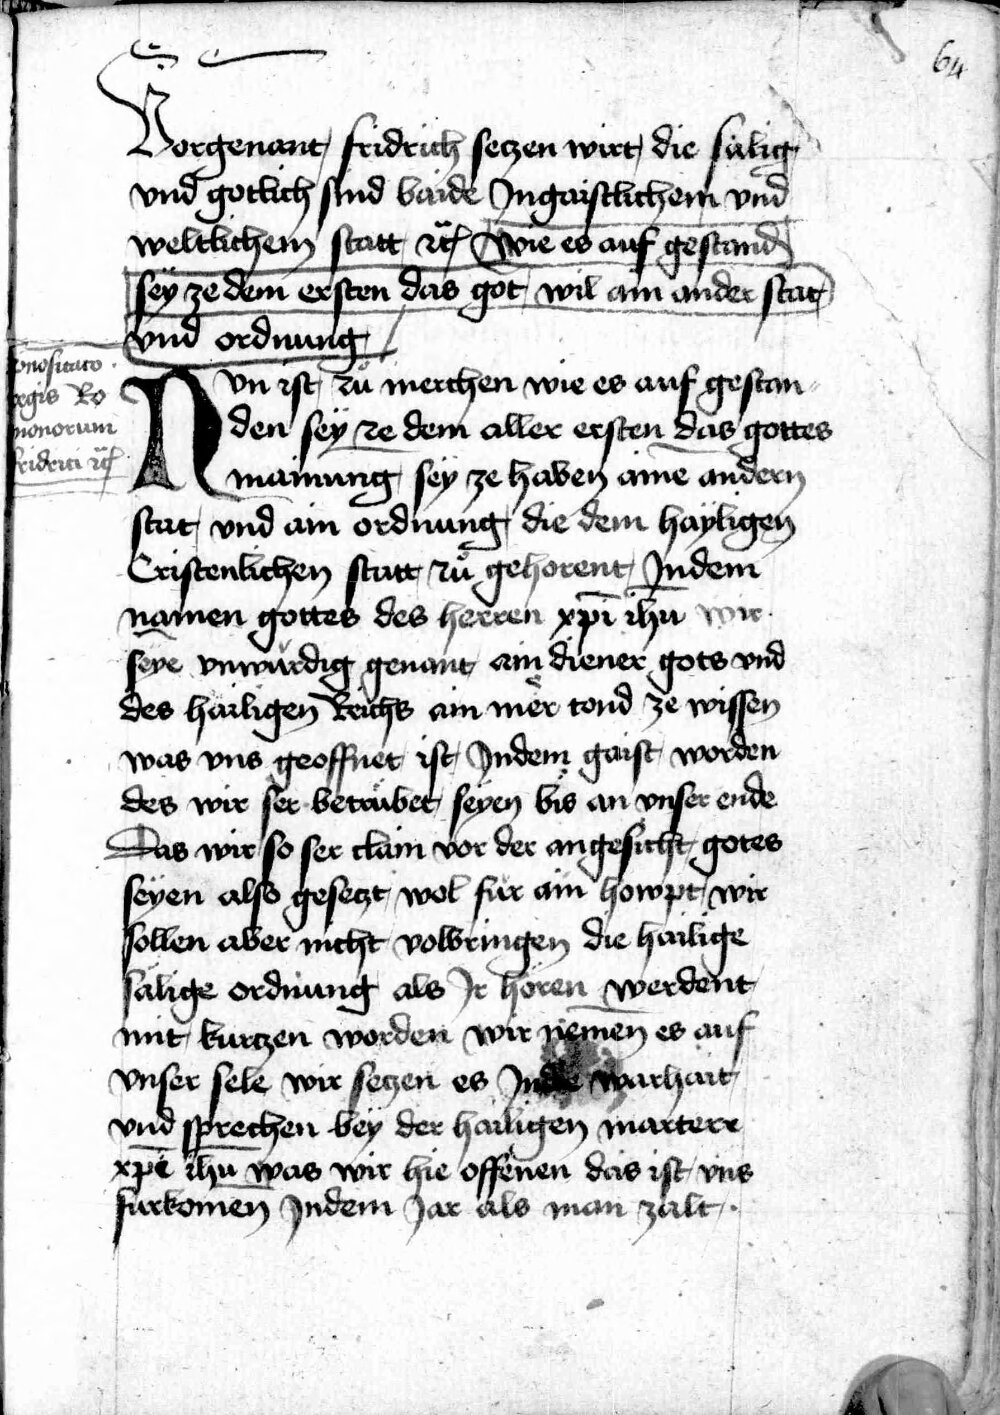 64
Vorgenant fridrich setzen wirt die sälig
vnd gotlich sind baide Jngaistlichem vnd
weltlichem statt ꝛc̃ Wie es auf gestand
seÿ ze dem ersten das got wil ain ander stat
vnd ordnung
regis Ro
manorum
fridrici ꝛc̃
NVn ist zů merchen wie es auf gestan
den seÿ ze dem aller ersten das gottes
mainung seÿ ze haben aine andern
stat vnd ain ordnung die dem haÿligen
Cristenlichen statt zů gehorent Jndem
namen gottes des herren xp̄i ih̄u wir
seye vnwürdig genant ain diener gots vnd
des hailigen Reichs ain mer tond ze wissen
was vns geoffnet ist Jndem gaist worden
des wir ser betrübet seÿen bis an vnser ende
Das wir so ser clain vor der angesicht gotes
seÿen also gesetzt wol für ain howpt wir
sollen aber nicht volbringen die hailige
sälige ordnung als Jr hören werdent
mit kurtzen worden wir nemen es auf
vnser sele wir setzen es Jndie warhait
vnd sprechen beÿ der hailigen marterr
xp̄i ih̄u was wir hie offenen das ist vns
fürkomen Jndem Jar als man zalt